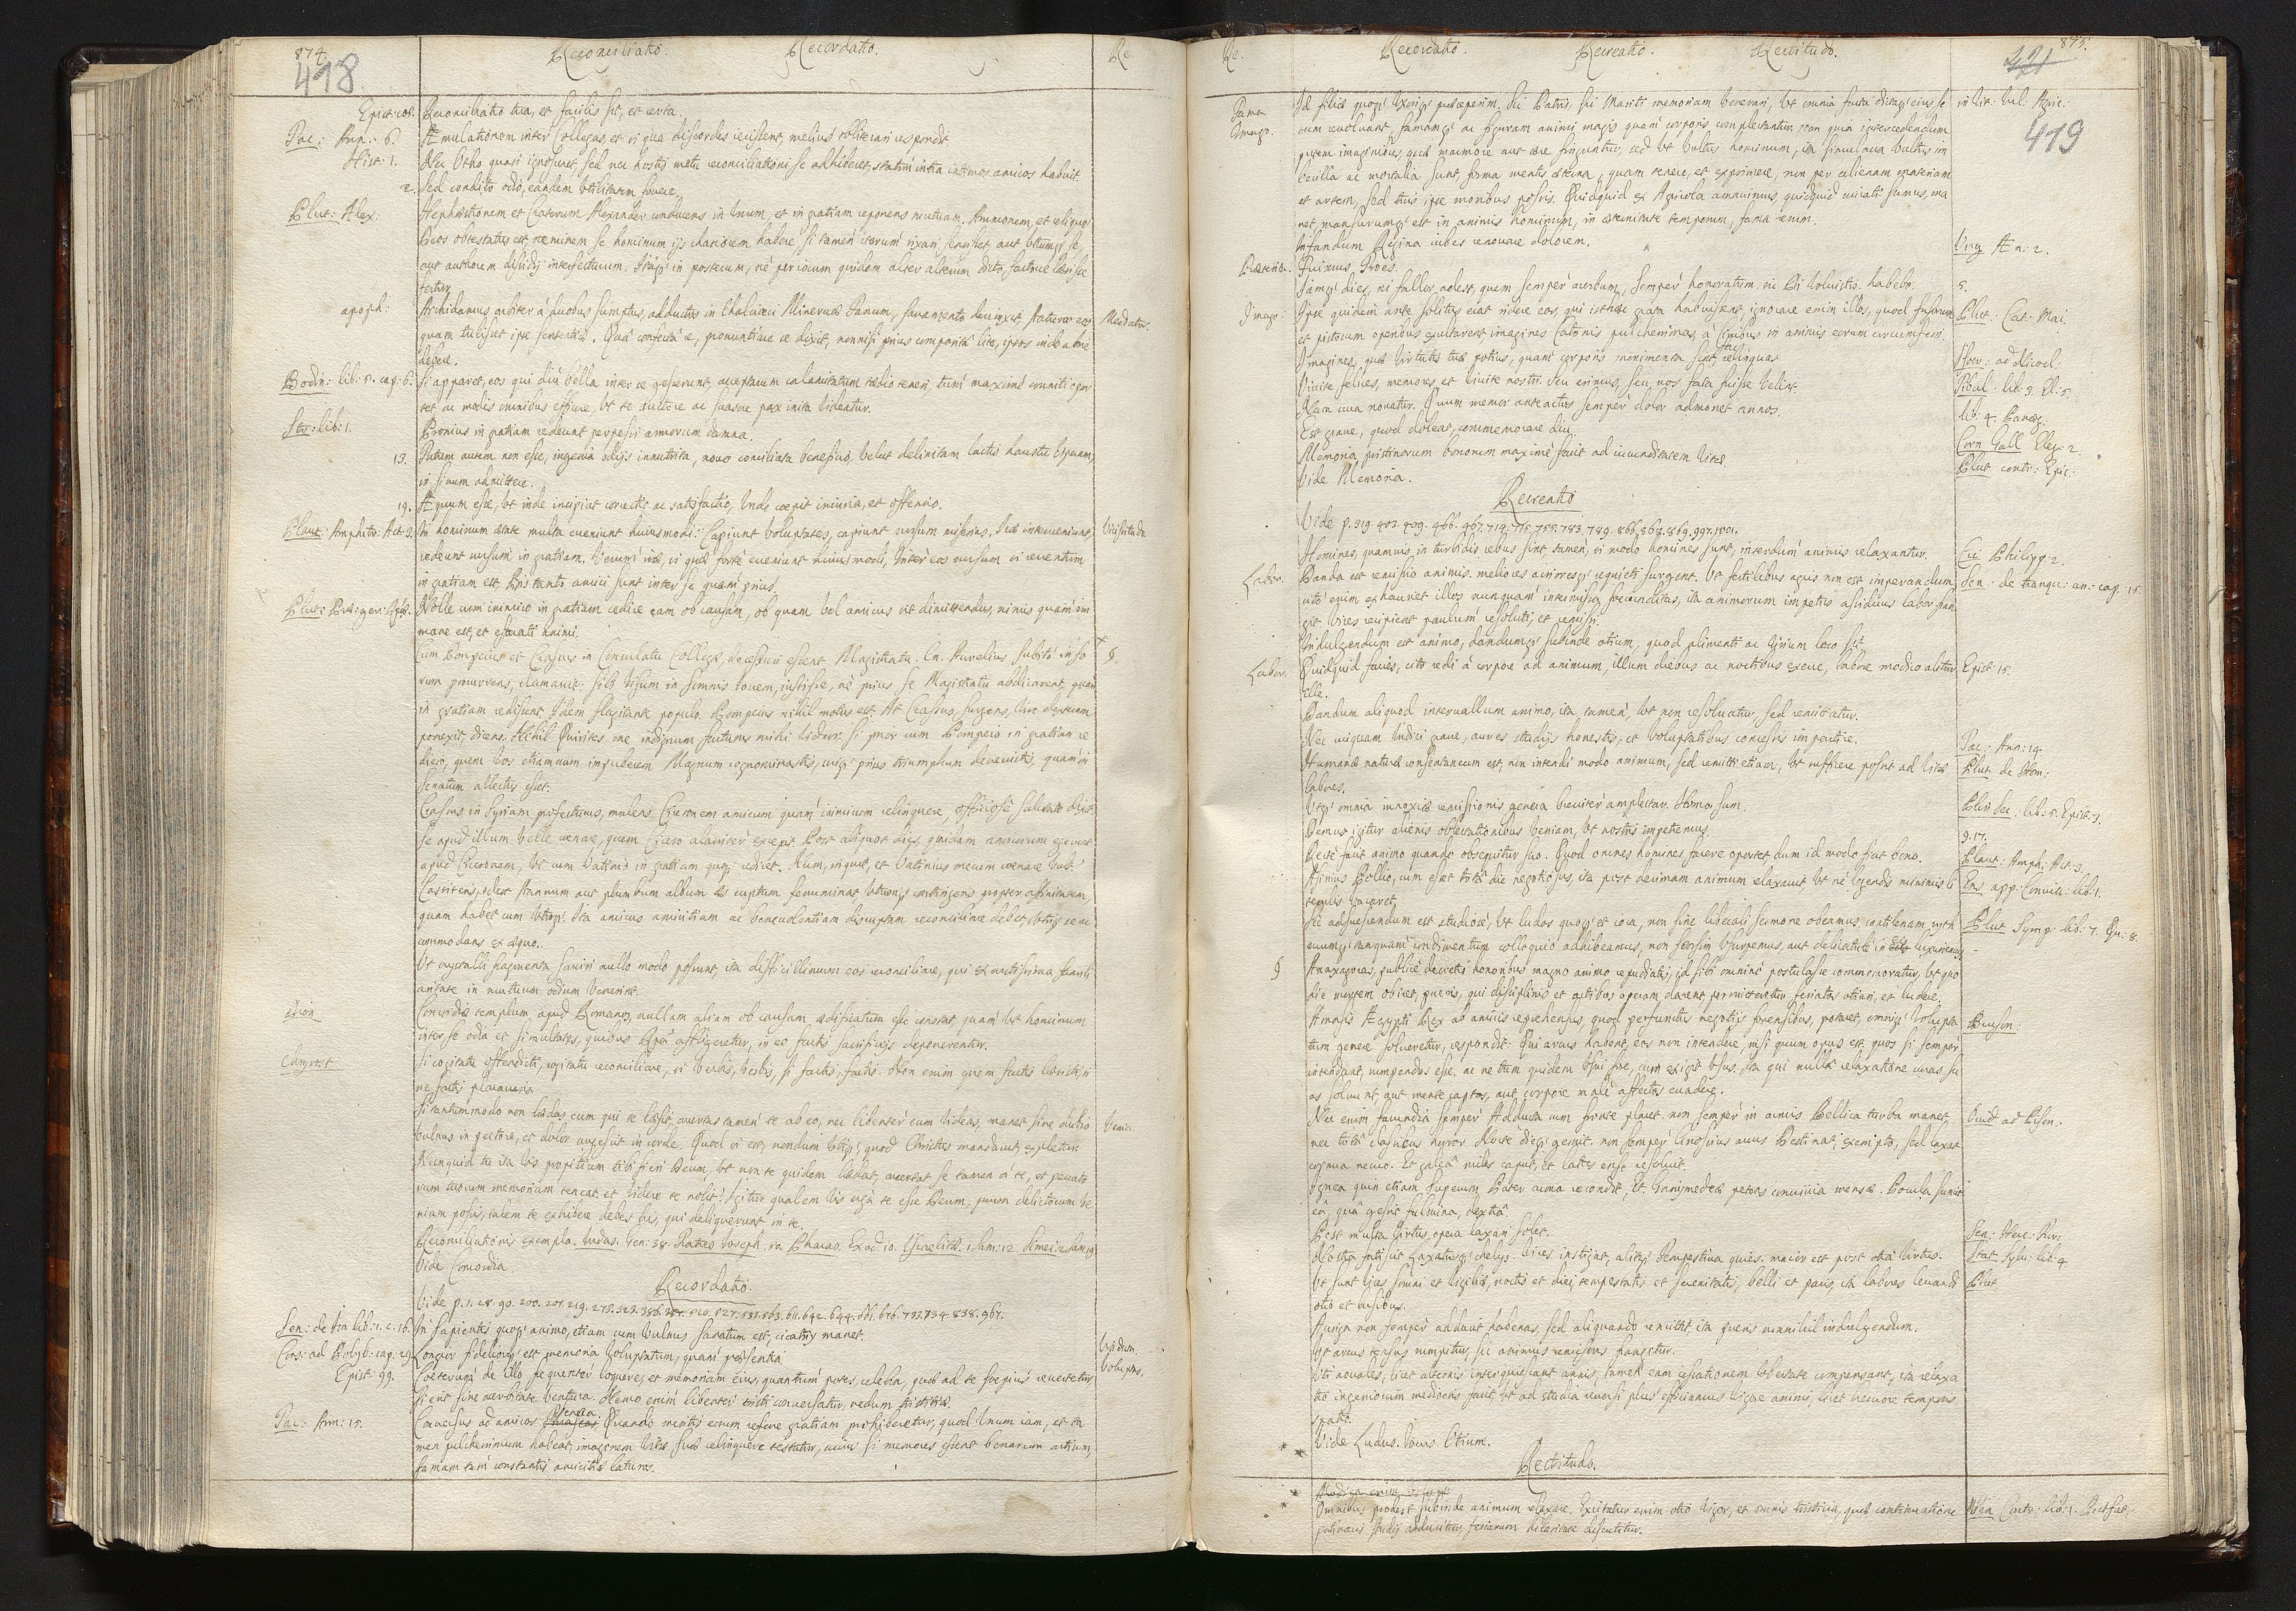 874.
418
Reconciliatio. Recordatio. Re
Epist: 108. Reconciliatio tua, et facilis sit, et certa.
Tac: Ann: 6. Æmulationem inter Collegas, et si qua discordes iecissent, melius obliterari respondit.
Hist: 1. Nec Otho quasi ignosceret, sed ne hostis metu reconciliationis se adhiberet, statim intra intimos amicos habuit.
2. Sed condito odio, eandem utilitatem fovere.
Plut: Alex: Hephæstionem et Craterum Alexander conducens in unum, et in gratiam reponens mutuam, Ammonem, et reliquos
Deos obtestatus est, neminem se hominum ijs chariorem habere, si tamen iterum rixari senserit, aut utrumq; se,
aut authorem dissidij interfecturum. Itaq; in posterum, ne per iocum quidem alter alterum dicto, factove læsisse
fertur.
apoph: Archidamus arbiter a duobus sumptus, adductis in Chalcioeci Minervæ Fanum, sacramento devinxit, staturos eos
Mediator.
quam tulisset ipse sententiæ. Qua confecta re, pronuntiare se dixit, non nisi prius composita lite, ipsos inde abire
debere.
Bodin: lib: 5. cap: 6. Si apparet, eos qui diu bella inter se gesserunt, acceptarum calamitatum tædio teneri, tum maxime conniti opor
tet, ac modis omnibus efficere, ut te auctore ac suasore pax inita videatur.
lib: 1. Pronius in gratiam redeunt perpessi armorum damna.
13. Putum autem non esse, ingenia odijs innutrita, novo conciliata beneficio, velut delinitam lactis haustu
in sinum admittere.
19. Æquum esse, ut inde incipiat correctio ac satisfactio, unde coepit iniuria, et offensio.
Plaut: Amphitr: Act: 3. In hominum ætate multa eveniunt huiusmodi: Capiunt voluptates, capiunt rursum miserias. Iræ interveniunt,
Vicissitudo
redeunt rursum in gratiam. Verum iræ, si quæ forte eveniunt huiusmodi, Inter eos rursum si reventum
in gratiam est, Bis tanto amici sunt inter se quam prius.
Nolle cum inimico in gratiam redire eam ob causam, ob quam vel amicus sit dimittendus, nimis quam im
mane est, et efferati animi.
Cum Pompeius et Crassus in Consulatu Collegæ, decessuri essent Magistratu, Cn. Aurelius subito in fo
§
rum procurrens, clamavit: sibi visum in somnis Iovem, iussisse, ne prius se Magistratu abdicarent, quam
in gratiam redissent. Idem flagitante populo, Pompeius nihil motus est. At Crassus, surgens, huic dextram
porrexit, dicens: Nihil Quirites me indignum facturus mihi videor, si prior cum Pompeio in gratiam re
diero, quem vos etiamnum imberbem Magnum cognominastis, cuiq; prius triumphum decrevistis, quam in
senatum allectus esset.
Crassus in Syriam profecturus, malens Ciceronem amicum quam inimicum relinquere, officiose salutato dixit
se apud illum velle coenare, quem Cicero alacriter excepit. Post aliquot dies, quidam amicorum egerunt
apud Ciceronem, ut cum Vatinio in gratiam quoq; rediret. Num, inquit, et Vatinius mecum coenare vult?
quam habet cum utroq;. Ita amicus amicitiam ac benevolentiam disruptam reconciliare debet, utriq; se ac
commodans ex æquo.
Ut crystalli fragmenta sarciri nullo modo possunt, ita difficillimum eos reconciliare, qui ex arctissima famili
aritate in mutuum odium venerint.
Dion Concordiæ templum, apud Romanos, nullam aliam ob causam ædificatum esse constat, quam ut hominum
inter se odia et simultates, quibus affligeretur, in eo factis sacrificijs deponerentur.
Chrysost Si cogitatu offendisti, cogitatu reconciliare, si verbis, verbis, si factis, factis. Non enim quem factis læsisti, si
ne factis placaveris.
Si tantummodo non lædas eum qui te læsit, avertas tamen te ab eo, nec libenter eum videas, manet sine dubio
Venia.
vulnus in pectore, et dolor augescit in corde. Quod si est, nondum utiq; quod Christus mandavit, expletum
Nunquid tu ita vis propitium tibi fieri Deum, ut non te quidem lædat, avertat se tamen a te, et peccato
rum tuorum memoriam teneat, et videre te nolit? Igitur qualem vis erga te esse Deum, quum delictorum ve
niam poscis, talem te exhibere debes his, qui deliquerunt in te.
Reconciliationis exempla. Iudas. Gen: 38. Fratres Ioseph. 50. Pharao. Exod. 10. Israelitæ. 1. Sam: 12. Simei. 2. Sam: 19
Vide Concordia.
Recordatio.
Vide p. 1. 28. 90. 200. 201. 219. 273. 323. 386. 611. 642. 644. 661. 676. 732. 734. 838. 967.
Sen: de Ira lib: 1. c: 16. In sapientis quoq; animo, etiam cum vulnus sanatum est, cicatrix manet.
Cons: ad Polyb: cap: 29. Longior fideliorq; est memoria voluptatum, quam præsentia.
Voluptas.
Epist: 99. Cæterum de illo frequenter loquere, et memoriam eius, quantum potes, celebra, quæ ad te sæpius revertetur
si erit sine acerbitate ventura. Nemo enim libenter tristi conversatur, nedum tristitiæ.
Tac: Ann: 15. Conversus ad amicos Seneca, Quando meritis eorum referre gratiam prohiberetur, quod unum iam, et ta
men pulcherrimum habeat, imaginem vitæ suæ relinquere testatur, cuius si memores essent bonarum artium,
famam tam constantis amicitiæ laturos.
Re. Recordatio. Recreatio. Rectitudo. 875.
421
419
Fama Id filiæ quoq; Uxoriq; præceperim, sic Patris, sic Mariti memoriam venerari, ut omnia facta dictaq; eius se
in vit: Iul: Agric:
Imago. cum revolvant, famamq; ac figuram animi magis quam corporis complectantur, non quia intercedendum
putem imaginibus, quæ marmore aut ære finguntur, sed ut vultus hominum, ita simulacra vultus im
becilla ac mortalia sunt, forma mentis æterna, quam tenere, et exprimere, non per alienam materiam
et artem, sed tuis ipse moribus possis. Quidquid ex Agricola amavimus, quidquid mirati sumus, ma
net, mansurumq; est in animis hominum, in æternitate temporum, fama rerum.
Infandum Regina iubes renovare dolorem.
Virg Æn: 2.
Fuimus Troes.
Iamq; dies, ni fallor, adest, quem semper acerbum, Semper honoratum, sic Di voluistis, habebo.
5.
Imago Ipse quidem ante solitus erat ridere eos, qui istæc grata habuissent, ignorare enim illos, quod fusorum
Plut: Cat: Mai.
et pictorum operibus exultarent, imagines Catonis pulcherrimas, a Civibus in animis eorum circumferri.
Imagines, quæ virtutis tuæ potius, quam corporis monimenta sint, fac relinquas
Isocr: ad Nicocl:
Vivite felices, memores et vivite nostri. Seu erimus, seu nos fata fuisse velint.
Tibul: lib: 3. El: 5.
Nam cura novatur. Quum memor anteactos semper dolor admonet annos.
lib: 4. Paneg:
Est grave, quod doleat, commemorare diu.
Corn Gall Eleg: 2.
Memoria pristinorum bonorum maxime facit ad iucunditatem vitæ.
Plut contr: Epic:
Vide Memoria.
Recreatio
Vide p. 319. 403. 409. 466. 467. 714. 715. 755. 783. 789. 866. 869. 997. 1001.
Homines, quamvis in turbidis rebus sint, tamen, si modo homines sunt, interdum animis relaxantur.
Cic Philipp: 2.
Labor. Danda est remissio animis. meliores acrioresq; requieti surgent. Ut fertilibus agris non est imperandum,
Sen: de tranqu: an: cap: 15.
cito enim exhauriet illos nunquam intermissa foecunditas, ita animorum impetus assiduus labor fran
git. Vires recipient paulum resoluti, et remissi.
Indulgendum est animo, dandumq; subinde otium, quod alimenti ac virium loco sit.
Labor. Quidquid facies, cito redi a corpore ad animum, illum diebus ac noctibus exerce, labore modico alitur
Epist: 15.
ille.
Dandum aliquod intervallum animo, ita tamen, ut non resolvatur, sed remittatur.
Nec iniquam Iudici grave, aures studijs honestis, et voluptatibus concessis impertire.
Tac: Ann: 14.
Humanæ naturæ consentaneum est, non intendi modo animum, sed remitti etiam, ut sufficere possit ad vitæ
Plut de Hom:
labores.
Utq; omnia innoxiæ remissionis genera breviter amplectar. Homo sum.
Plin Sec: lib: 5. Epist: 3.
Demus igitur alienis oblectationibus veniam, ut nostris impetremus.
9. 17.
Recte facit animo quando obsequitur suo. Quod omnes homines facere oportet dum id modo fiat bono.
Plaut: Amph: Act: 3.
Asinius Pollio, cum esset tota die negotiosus, ita post decimam animum relaxavit, ut ne legendis minimis li
tellis vacaret.
Sic adsuescendum est studiose, ut ludos quoq; et ioca, non sine liberali sermone obeamus, cantilenam, 
Plut Symp: lib: 7. Qu: 8.
§ Anaxagoras, publice decretis honoribus magno animo repudiatis, id sibi omnino postulasse commemoratur, ut quo
die mortem obiret, pueris, qui disciplinis et artibus operam darent, permitteretur feriatos otiari, et ludere.
Amasis Ægypti Rex ab amicis reprehensus, quod perfunctus negotijs forensibus, potaret, omniq; volupta
Bruson:
tum genere solveretur, respondit: Qui arcus habent, eos non intendere, nisi quum opus est, quos si semper
intendant, rumpendos esse, ac ne tum quidem usui fore, cum exigit usus. Ita qui nulla relaxatione curas su
as solvunt, aut mente captos, aut corpore male affectos evadere.
Nec enim facundia semper Adducta cum fronte placet. non semper in armis Bellica turba manet,
Ovid ad Pison:
nec tota classicus horror Nocte dieq; gemit. non semper Gnossius arcus Destinat, exempto, sed laxat
cornua nervo. Et galea miles caput, et latus ense resolvit.
Ignea quin etiam superum Pater arma recondit, Et Ganymedeæ petens convivia mensæ, Pocula sumit
ea, qua gessit fulmina, dextra.
Post multa virtus, opera laxari solet.
Sen: Herc: Fur:
Stat Sylv: lib: 4.
Ut sunt vices somni et vigiliæ, noctis et diei, tempestatis et serenitatis, belli et pacis, ita labores levandi
Plut
otio et lusibus.
Auriga non semper adducit habenas, sed aliquando remittit, ita pueris nonnihil indulgendum.
Ut arcus tensus rumpitur, sic animus remissione frangitur.
Uti novales, licet alternis interquiescant annis, tamen eam cessationem ubertate compensant, ita relaxa
tio ingeniorum mediocris facit, ut ad studia reversi plus efficiamus vigore animi, licet breviore temporis
spatio.
Vide Ludus. Iocus. Otium.
Rectitudo.
Omnibus prodest subinde animum relaxare. Excitatur enim otio vigor, et omnis tristitia, quæ continuatione
Sen Contr: lib: 1. Præfat:
pertinacis studij adducitur, feriarum hilaritate discutitur.